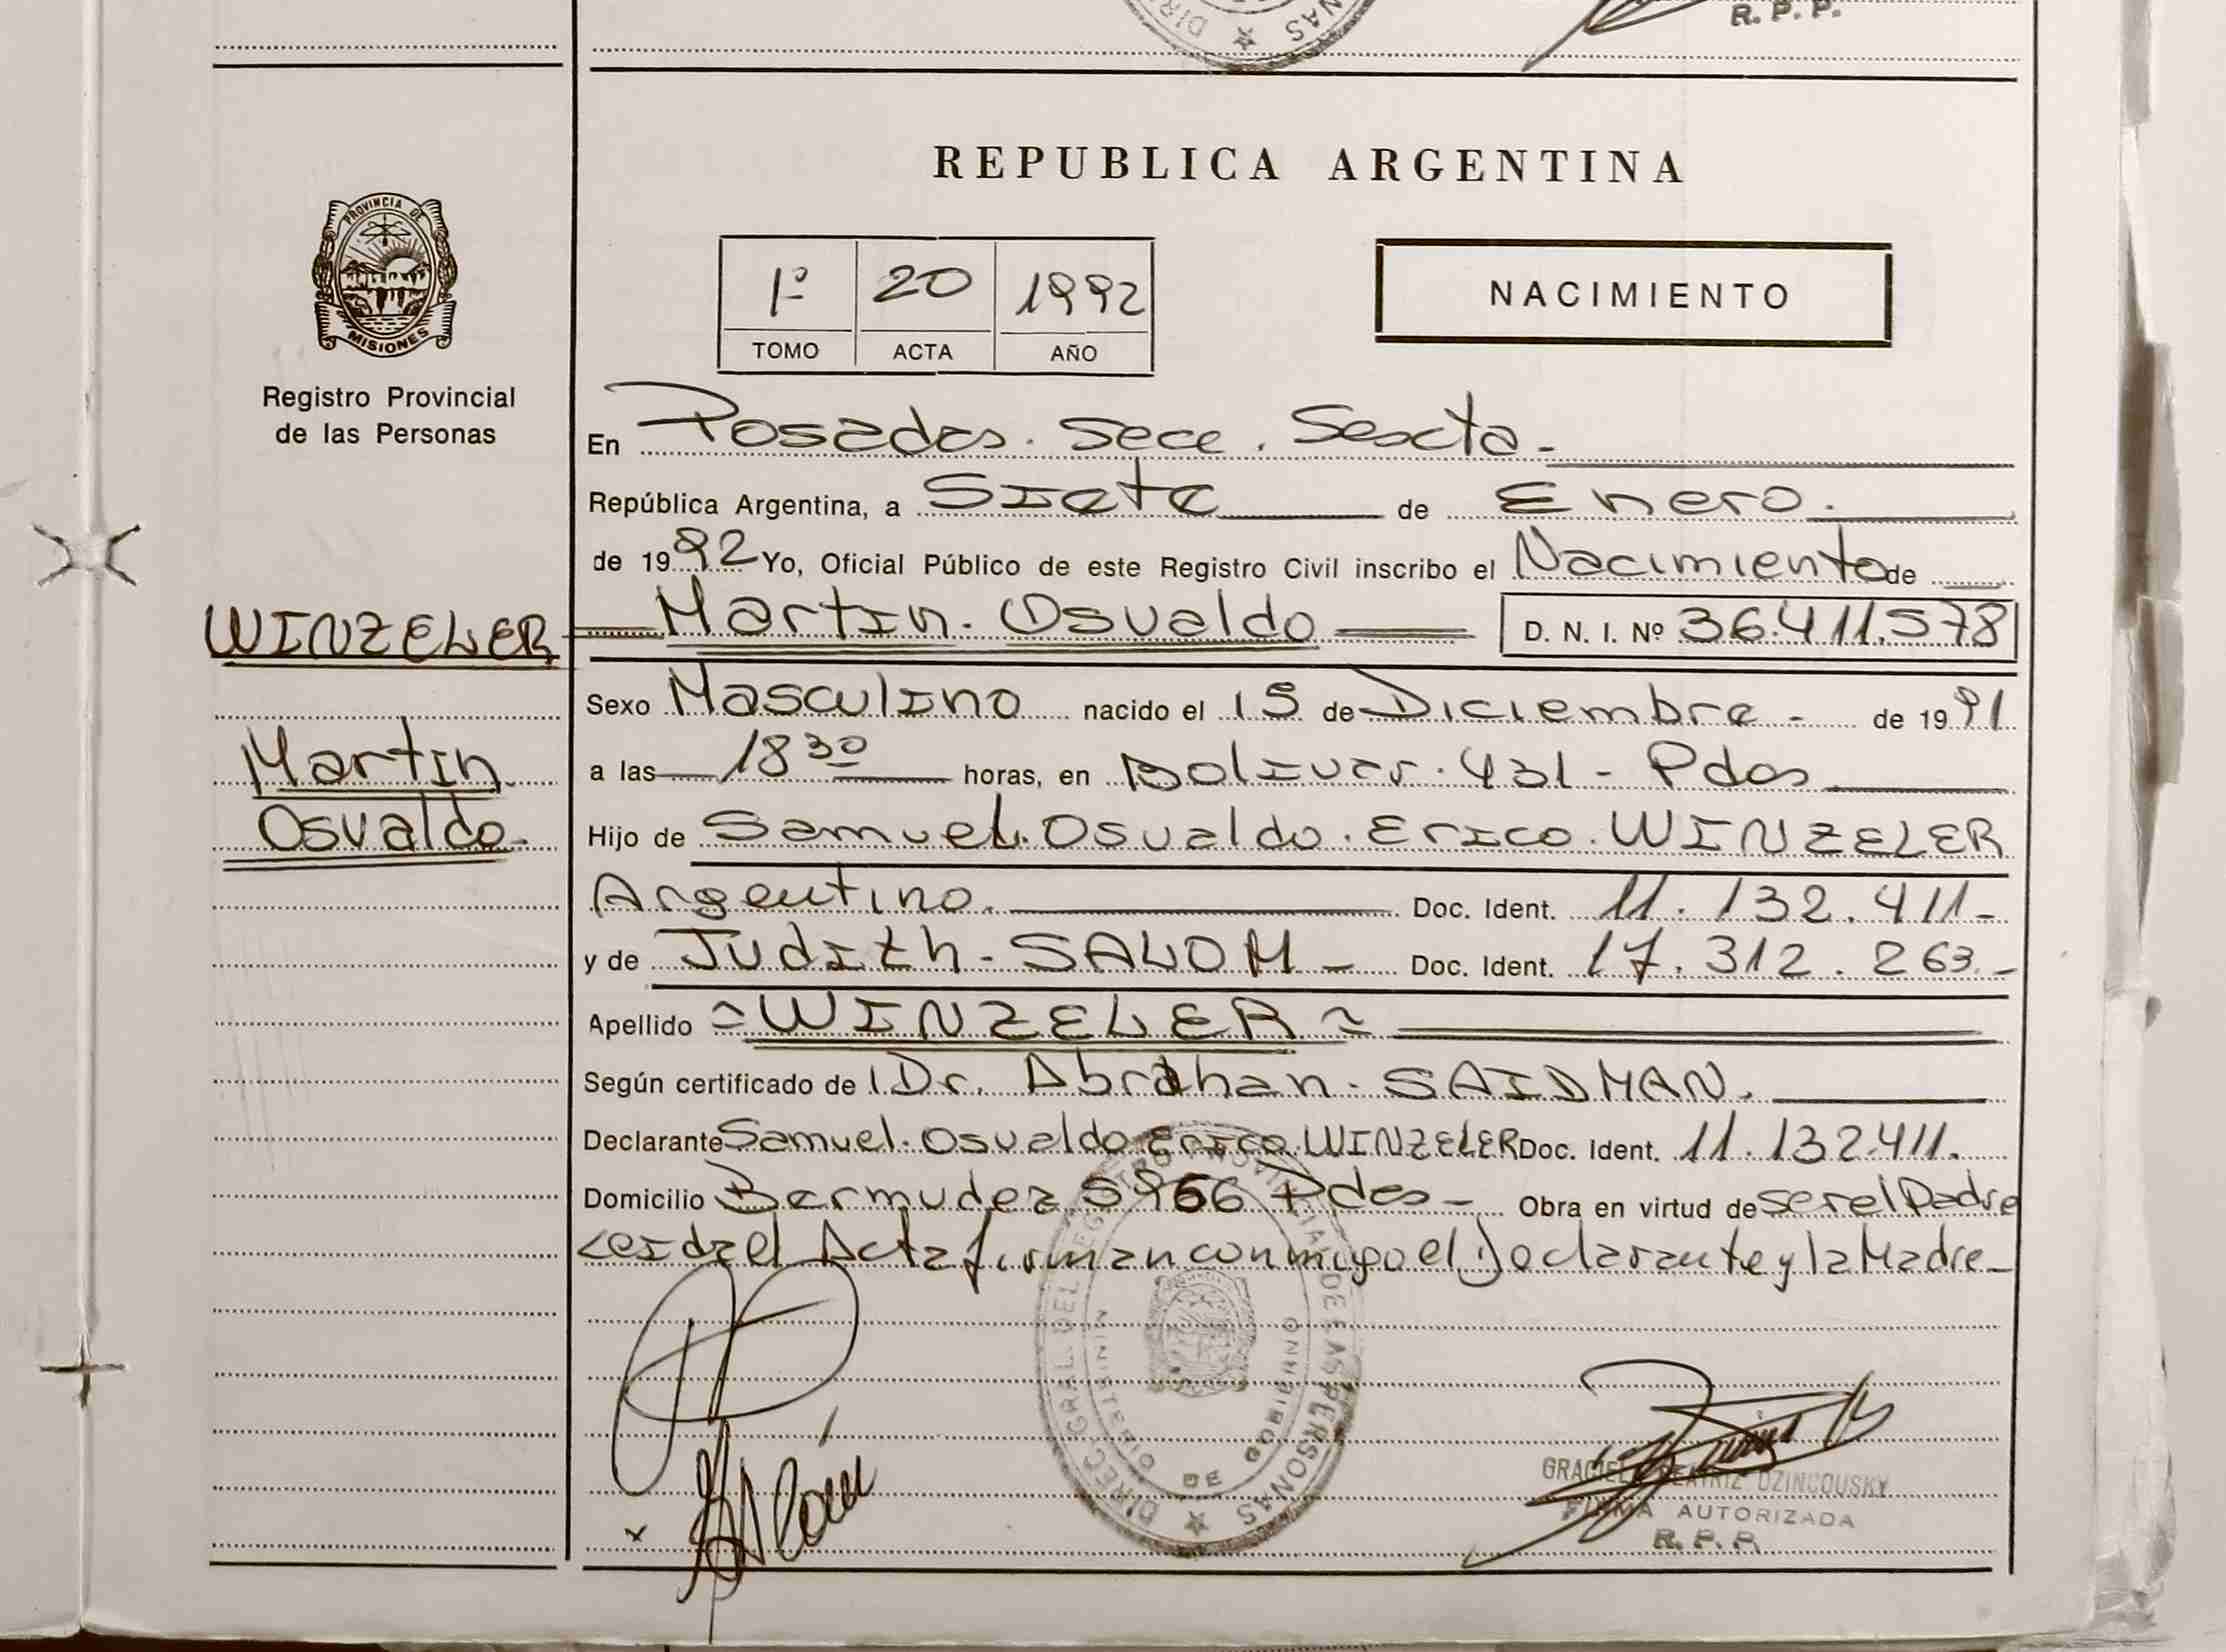 R. P. P.
REPUBLICA ARGENTINA
PROVINCIA DE
MISIONES
Registro Provincial
de las Personas
1º 20 1992
TOMO ACTA AÑO
NACIMIENTO
En Posadas. Secc. Sexta.
República Argentina, a Siete de Enero.
de 1992 Yo, Oficial Público de este Registro Civil inscribo el Nacimiento de
WINZELER Martin. Osvaldo D. N. I. Nº 36.411.578
Sexo Masculino nacido el 15 de Diciembre - de 1991
Martin
a las 18 30 horas, en Bolivar. 431 - Pdas
Osvaldo.
Hijo de Samuel. Osvaldo. Erico. WINZELER
Argentino. Doc. Ident. 11.132.411-
y de Judith - SALOM - Doc. Ident. 17.312.263.-
Apellido = WINZELER =
Según certificado de Dr. Abrahan. SAIDMAN.
Declarante Samuel. Osvaldo Erico. WINZELER Doc. Ident. 11.132.411.
Domicilio Bermudez 5966 Pdas - Obra en virtud de ser el Padre
Leida el Acta firman conmigo el Declarante y la Madre -
DIREC. GRAL. DEL REGISTRO PROVINCIAL DE LAS PERSONAS
MINISTERIO DE GOBIERNO
GRACIELA BEATRIZ DZINCOUSKY
FIRMA AUTORIZADA
R. P. P.